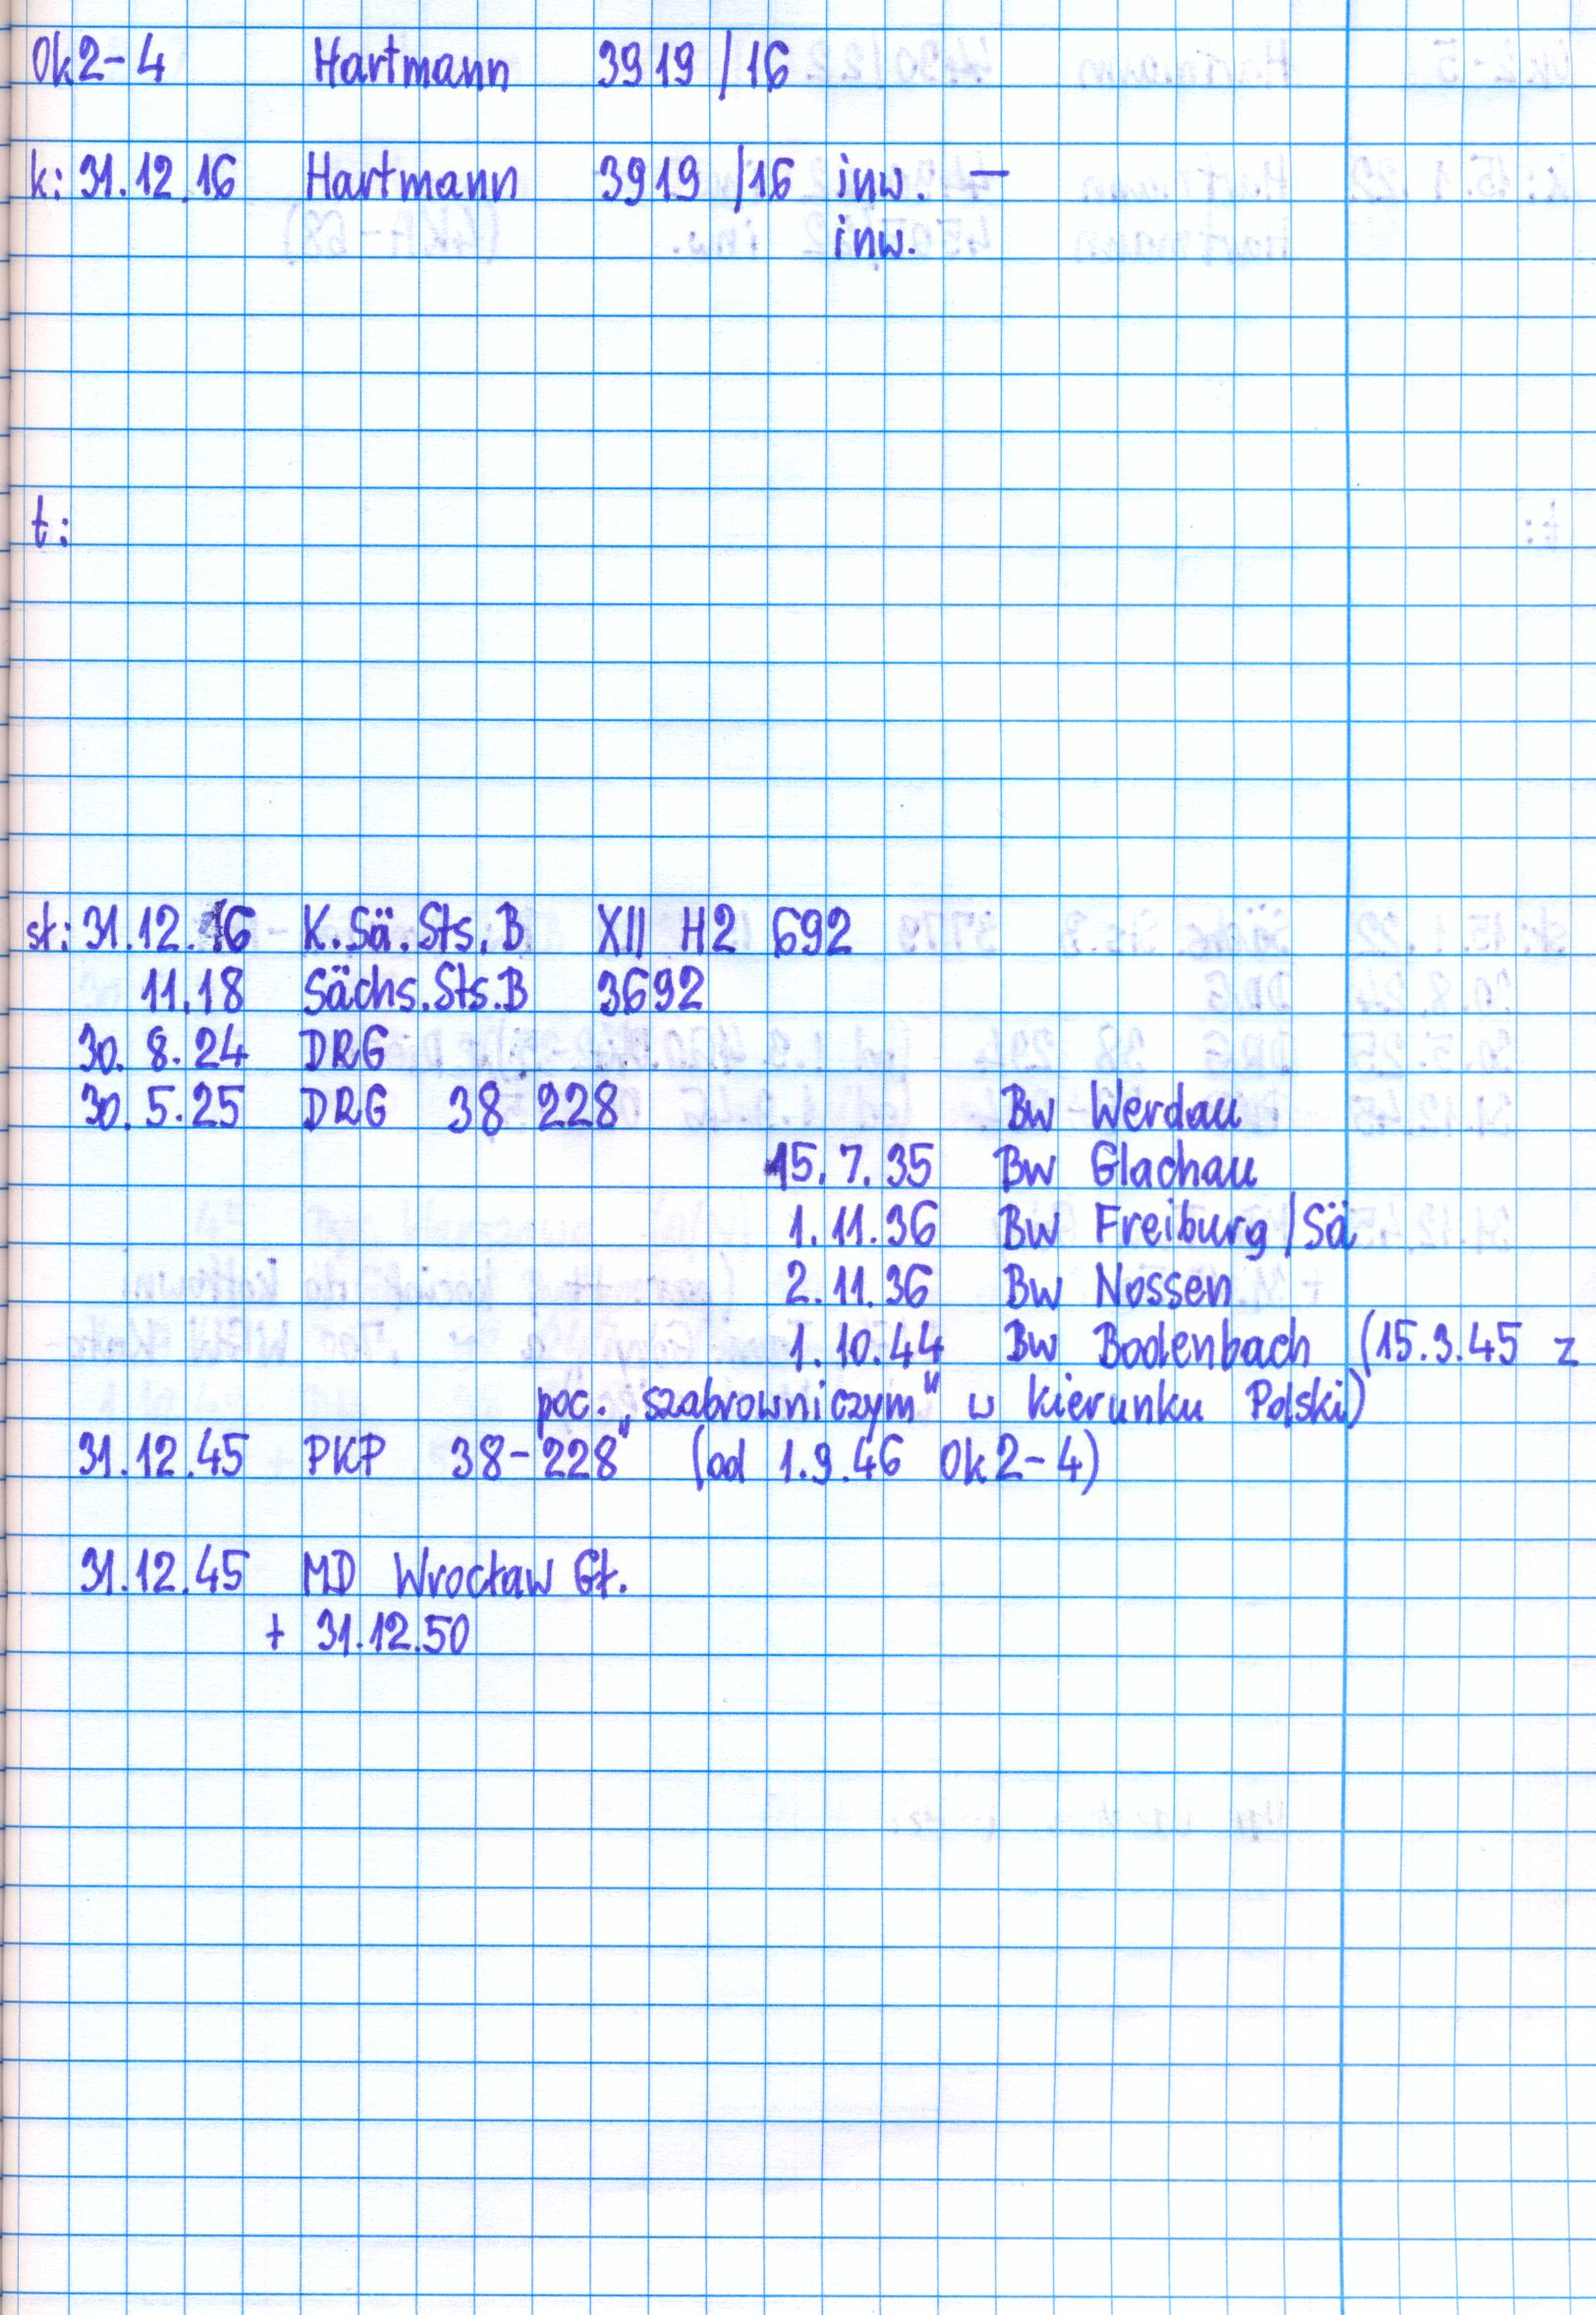 Ok2-4 Hartmann 3919/16
k: 31.12.16 Hartmann 3919/16 inw. —
inw.
t:
st: 31.12.16 K.Sä.Sts.B XII H2 692
11.18 Sächs.Sts.B 3692
30.8.24 DRG
30.5.25 DRG 38 228 Bw Werdau
15.7.35 Bw Glachau
1.11.36 Bw Freiburg/Sä
2.11.36 Bw Nossen
1.10.44 Bw Bodenbach (15.3.45 z
poc. „szabrowniczym" w kierunku Polski)
31.12.45 PKP 38-228 (od 1.9.46 Ok2-4)
31.12.45 MD Wrocław Gł.
+ 31.12.50